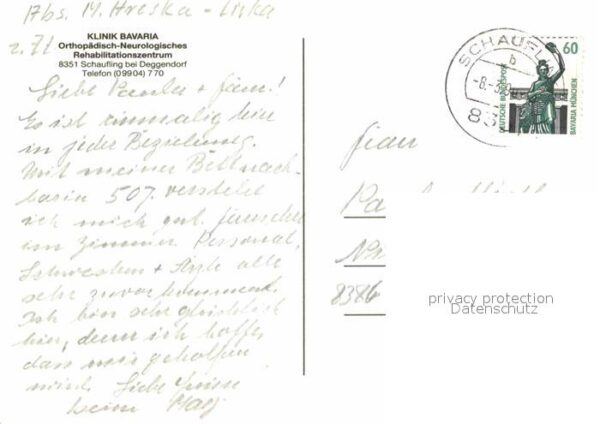 Abs. M. Hreska - Linka
z. 71
KLINIK BAVARIA
Orthopädisch-Neurologisches
Rehabilitationszentrum
8351 Schaufling bei Deggendorf
Telefon (09904) 770
Liebe Paula + !
Es ist einmalig hier
in jeder Beziehung.
Mit meiner Bettnach-
barin 507. verstehe
ich mich gut
im Zimmer Personal,
Schwestern + Ärzte alle
sehr zuvorkommend.
Ich bin sehr glücklich
hier, denn ich hoffe,
dass mir geholfen
wird. Liebe Grüsse
SCHAUFLI
b
-8.
83
60
DEUTSCHE BUNDESPOST
BAVARIA MÜNCHEN
Frau
Pa
8386
privacy protection
Datenschutz